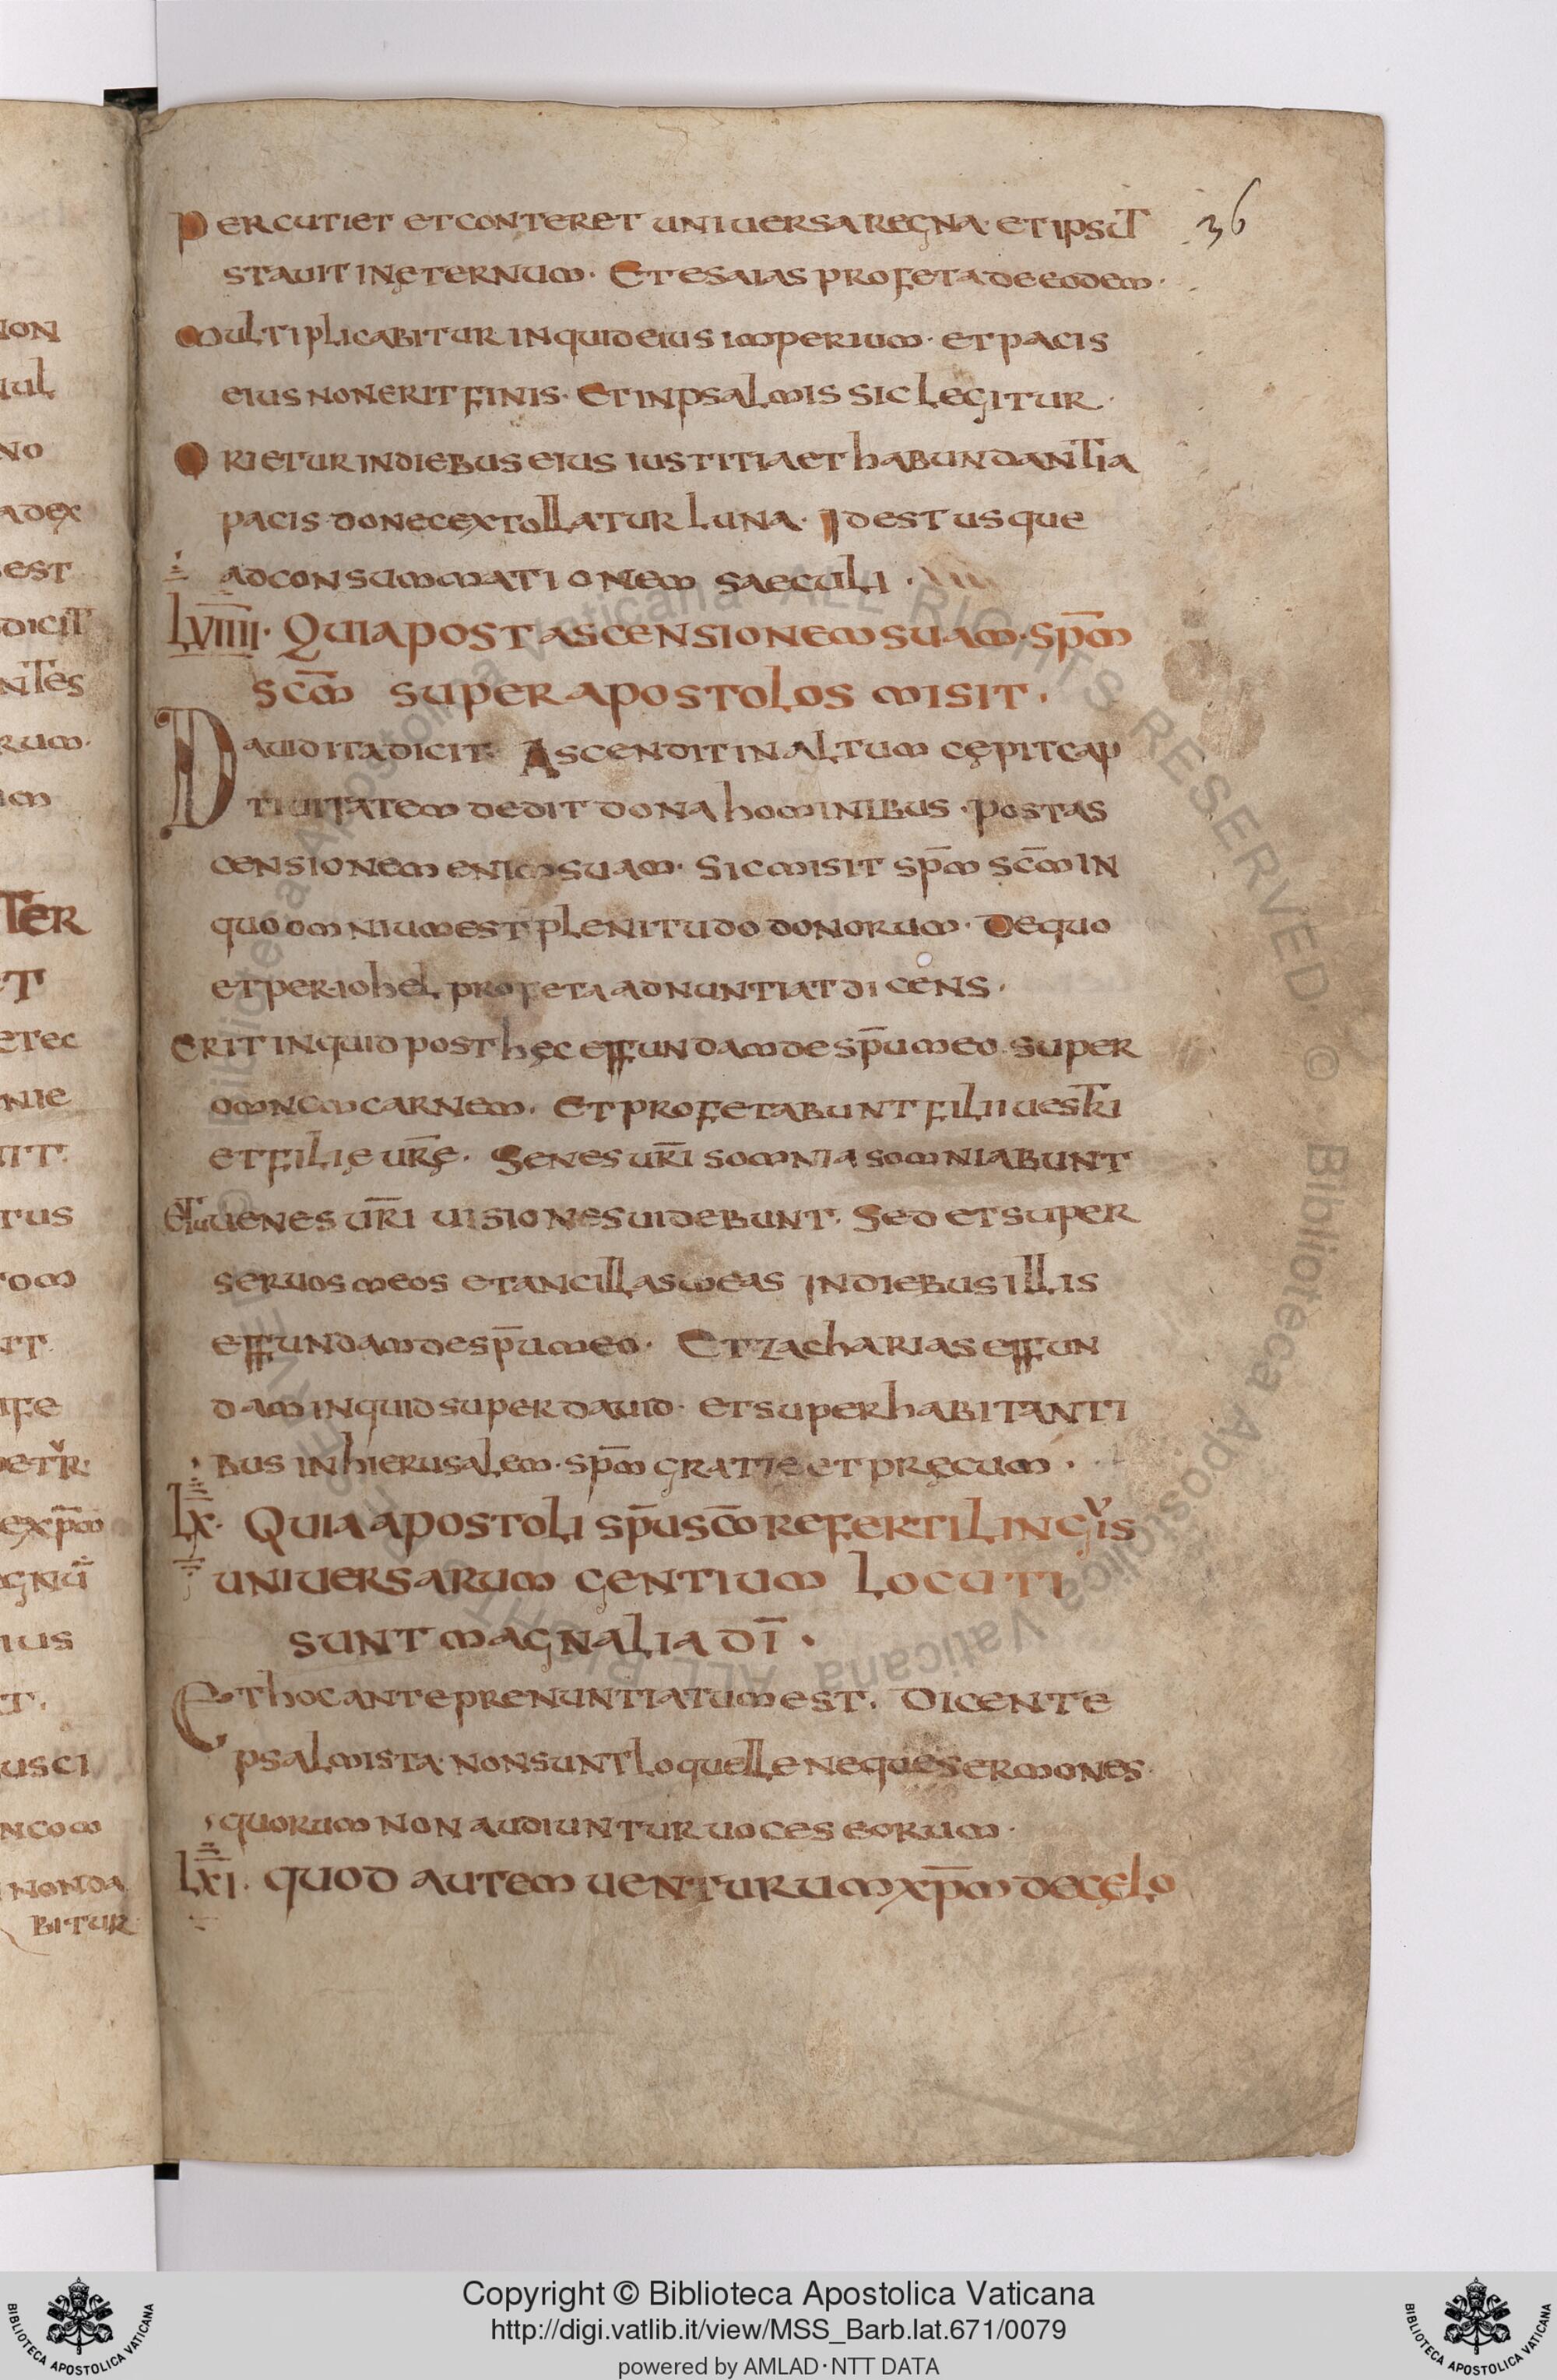 36
Percutiet et conteret uniuersa regna· et ipsũt
stauit in ęternum· Et esaias profeta de eodem·
multiplicabitur inquid eius imperium· et pacis
eius non erit finis· Et in psalmis sic legitur·
Orietur in diebus eius iustitia et habundantia
pacis donec extollatur luna· Id est usque
ad consummationem saeculi·
LVIIII· Quia post ascensionem suam· sp̄m
sc̄m super apostolos misit·
Dauid ita dicit· Ascendit in altum cępit cap
tiuitatem dedit dona hominibus· post as
censionem enim suam· sic misit sp̄m sc̄m in
quo omnium est plenitudo donorum· De quo
et per iohel profeta adnuntiat dicens·
Erit inquid post hęc effundam de sp̄u meo super
omnem carnem· Et profetabunt filii uestri
et filię ur̄ę· Senes ur̄i somnia somniabunt
et iuuenes ur̄i uisiones uidebunt· Sed et super
seruos meos et ancillas meas in diebus illis
effundam de sp̄u meo· Et zacharias effun
dam inquid super dauid· et super habitanti
bus in hierusalem· sp̄m gratie et pręcum·
LX· Quia apostoli sp̄u sc̄o referti linguis
uniuersarum gentium locuti
sunt magnalia dī·
Et hoc ante prenuntiatum est· Dicente
psalmista· non sunt loquelle neque sermones·
quorum non audiuntur uoces eorum·
LXI· quod autem uenturum xp̄m de cęlo
Copyright © Biblioteca Apostolica Vaticana
http://digi.vatlib.it/view/MSS_Barb.lat.671/0079
powered by AMLAD·NTT DATA
BIBLIOTECA APOSTOLICA VATICANA
BIBLIOTECA APOSTOLICA VATICANA